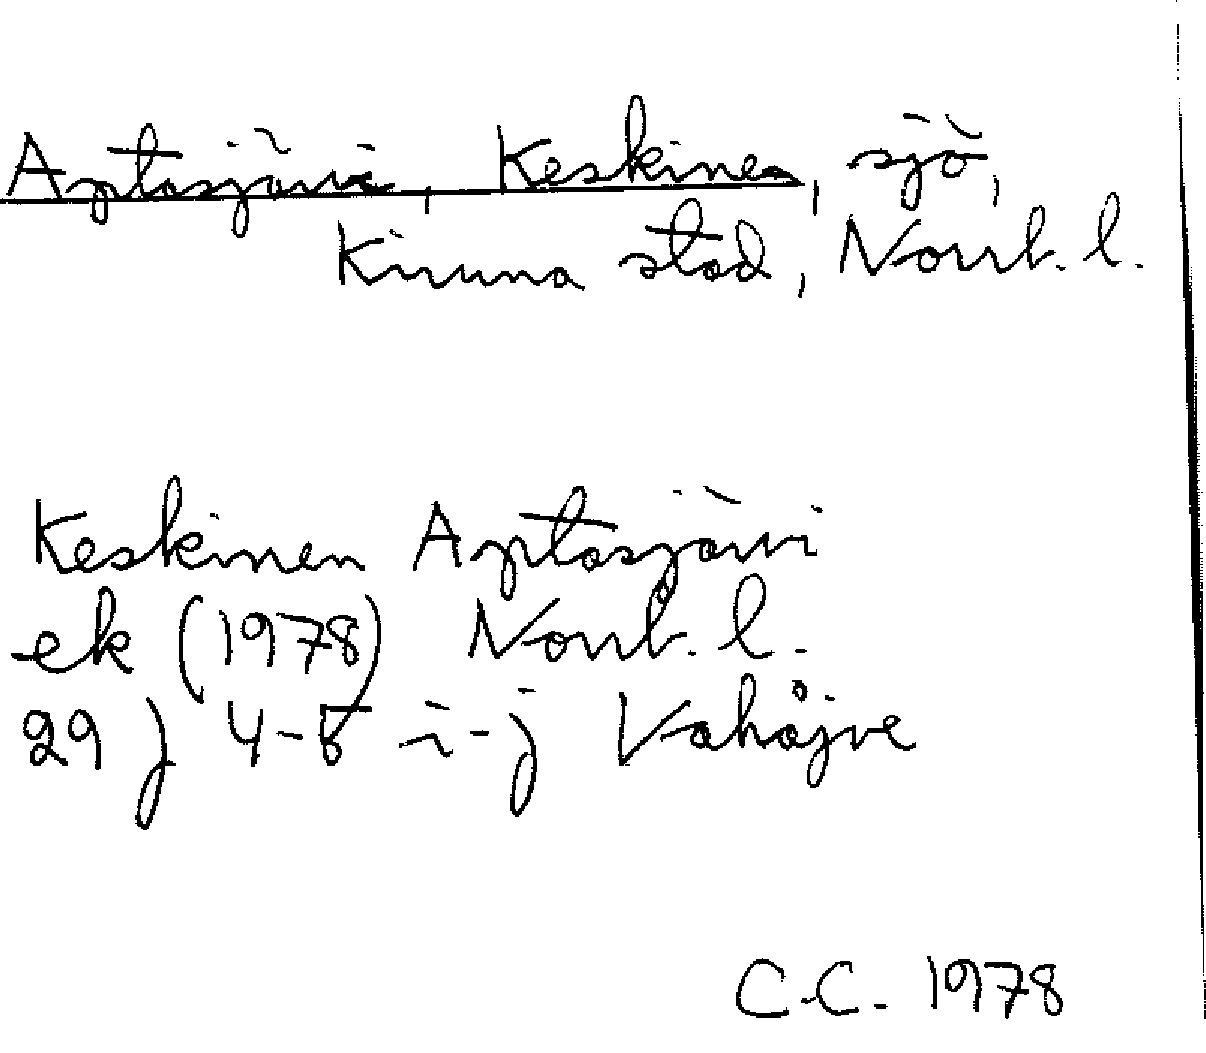 Aptasjärvi, Keskinen, sjö,
Kiruna stad, Norrb. l.
Keskinen Aptasjärvi
ek (1978) Norrb. l.
29 J 4-5 i-j Vahåjve
C.C. 1978